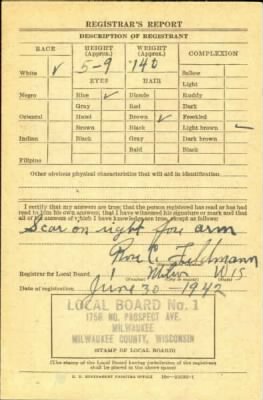 REGISTRAR'S REPORT
DESCRIPTION OF REGISTRANT
RACE HEIGHT (Approx.) WEIGHT (Approx.) COMPLEXION
White ✓ 5-9 140 Sallow
EYES HAIR Light
Negro Blue ✓ Blonde Ruddy
Gray Red Dark
Oriental Hazel Brown ✓ Freckled
Brown Black Light brown ✓
Indian Black Gray Dark brown
Bald Black
Filipino
Other obvious physical characteristics that will aid in identification
I certify that my answers are true; that the person registered has read or has had
read to him his own answers; that I have witnessed his signature or mark and that
all of his answers of which I have knowledge are true, except as follows:
Scar on right fore arm
Rose C. Feldmann
Registrar for Local Board 1 Milw Wis
(Number) (City or county) (State)
Date of registration June 30 - 1942
LOCAL BOARD No. 1
1758 NO. PROSPECT AVE.
MILWAUKEE
MILWAUKEE COUNTY, WISCONSIN
(STAMP OF LOCAL BOARD)
(The stamp of the Local Board having jurisdiction of the registrant
shall be placed in the above space)
U. S. GOVERNMENT PRINTING OFFICE